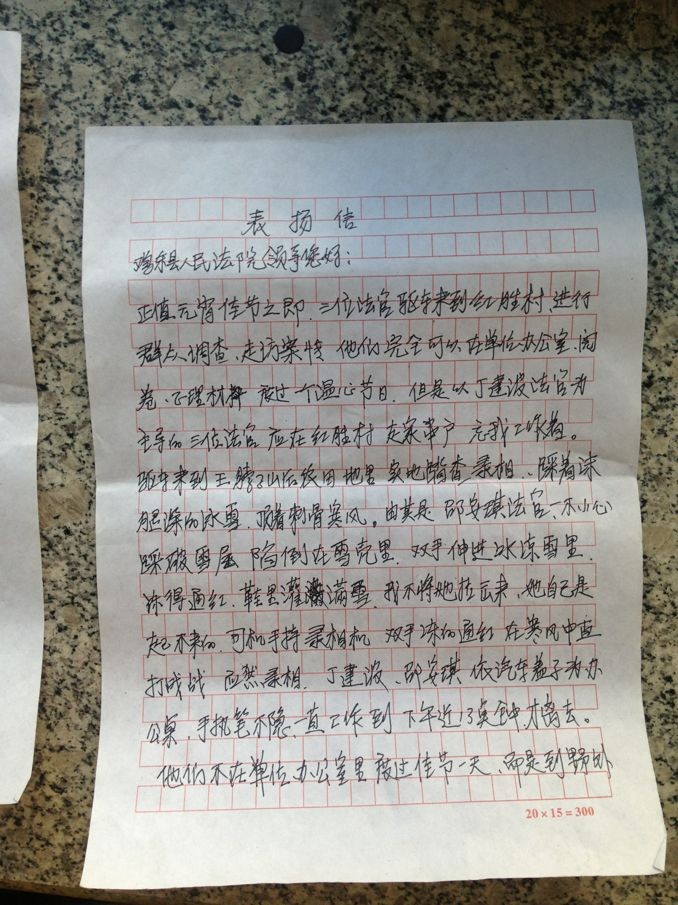 表扬信
鸡东县人民法院领导您好：
正值元宵佳节之即，三位法官驱车来到红胜村，进行
群众调查，走访案情 他们完全可以在单位办公室，阅
卷、正理材料 度过一个温心节日，但是以丁建波法官为
主导的三位法官 应在红胜村 走家串户 忘我工作着。
驱车来到王 山后农田地里 实地踏查录相，踩着没
膝深的冰雪，顶着刺骨寒风。由其是 邵安琪法官，不小心
踩破雪 陷倒在雪壳里，双手伸进冰冻雪里，
冻得通红，鞋里灌满雪，我不将她拉出来，她自己是
起不来的，司机手持录相机 双手冻的通红 在寒风中直
打战 应然录相，丁建波、邵安琪 依汽车盖子为办
公桌，手执笔不隐一直工作到 下午近 点钟才离去。
他们不在单位办公室里度过佳节一天，而是到野外
20×15=300